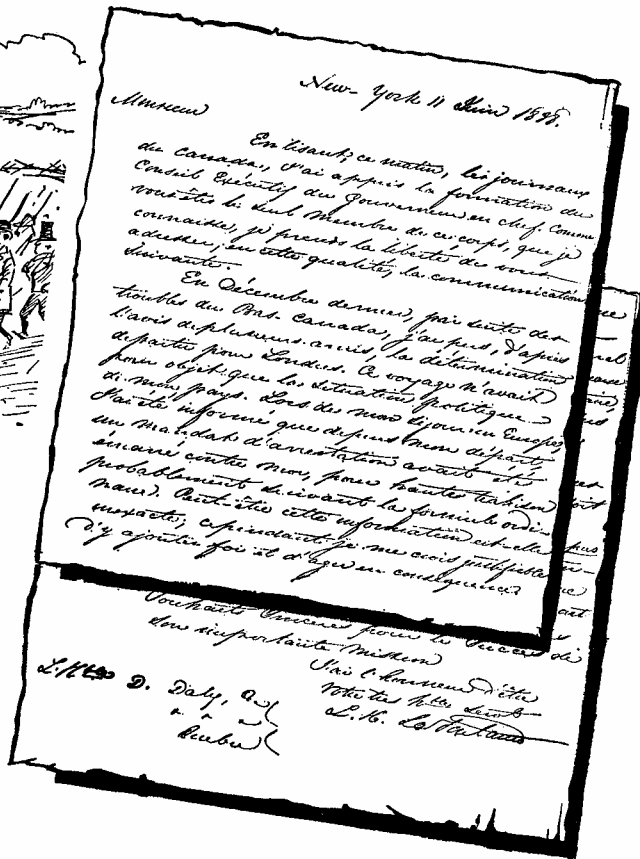 New-York 11 Juin 1838.
Monsieur
En lisant, ce matin, les journaux
du Canada, j'ai appris la formation du
Conseil Exécutif du Gouverneur en chef. Comme
vous êtes le seul membre de ce corps, que je
connaisse, je prends la liberté de vous
adresser, en cette qualité, la communication
suivante.
En Décembre dernier, par suite des
troubles du Bas-Canada, j'ai pris, d'après
l'avis de plusieurs amis, la détermination
de partir pour Londres. Ce voyage n'avait
pour objet que la situation politique
de mon pays. Lors de mon séjour en Europe,
j'ai été informé que depuis mon départ,
un mandat d'arrestation avait été
émané contre moi, pour haute trahison
probablement suivant la formule ordi-
naire. Peut-être cette information est-elle
inexacte, cependant je me crois justifiable
d'y ajouter foi et d'agir en conséquence
souhaits sincères pour le succès de
son importante mission
J'ai l'honneur d'être
Votre très hble servt
L. H. LaFontaine
D. Daly,
Quebec